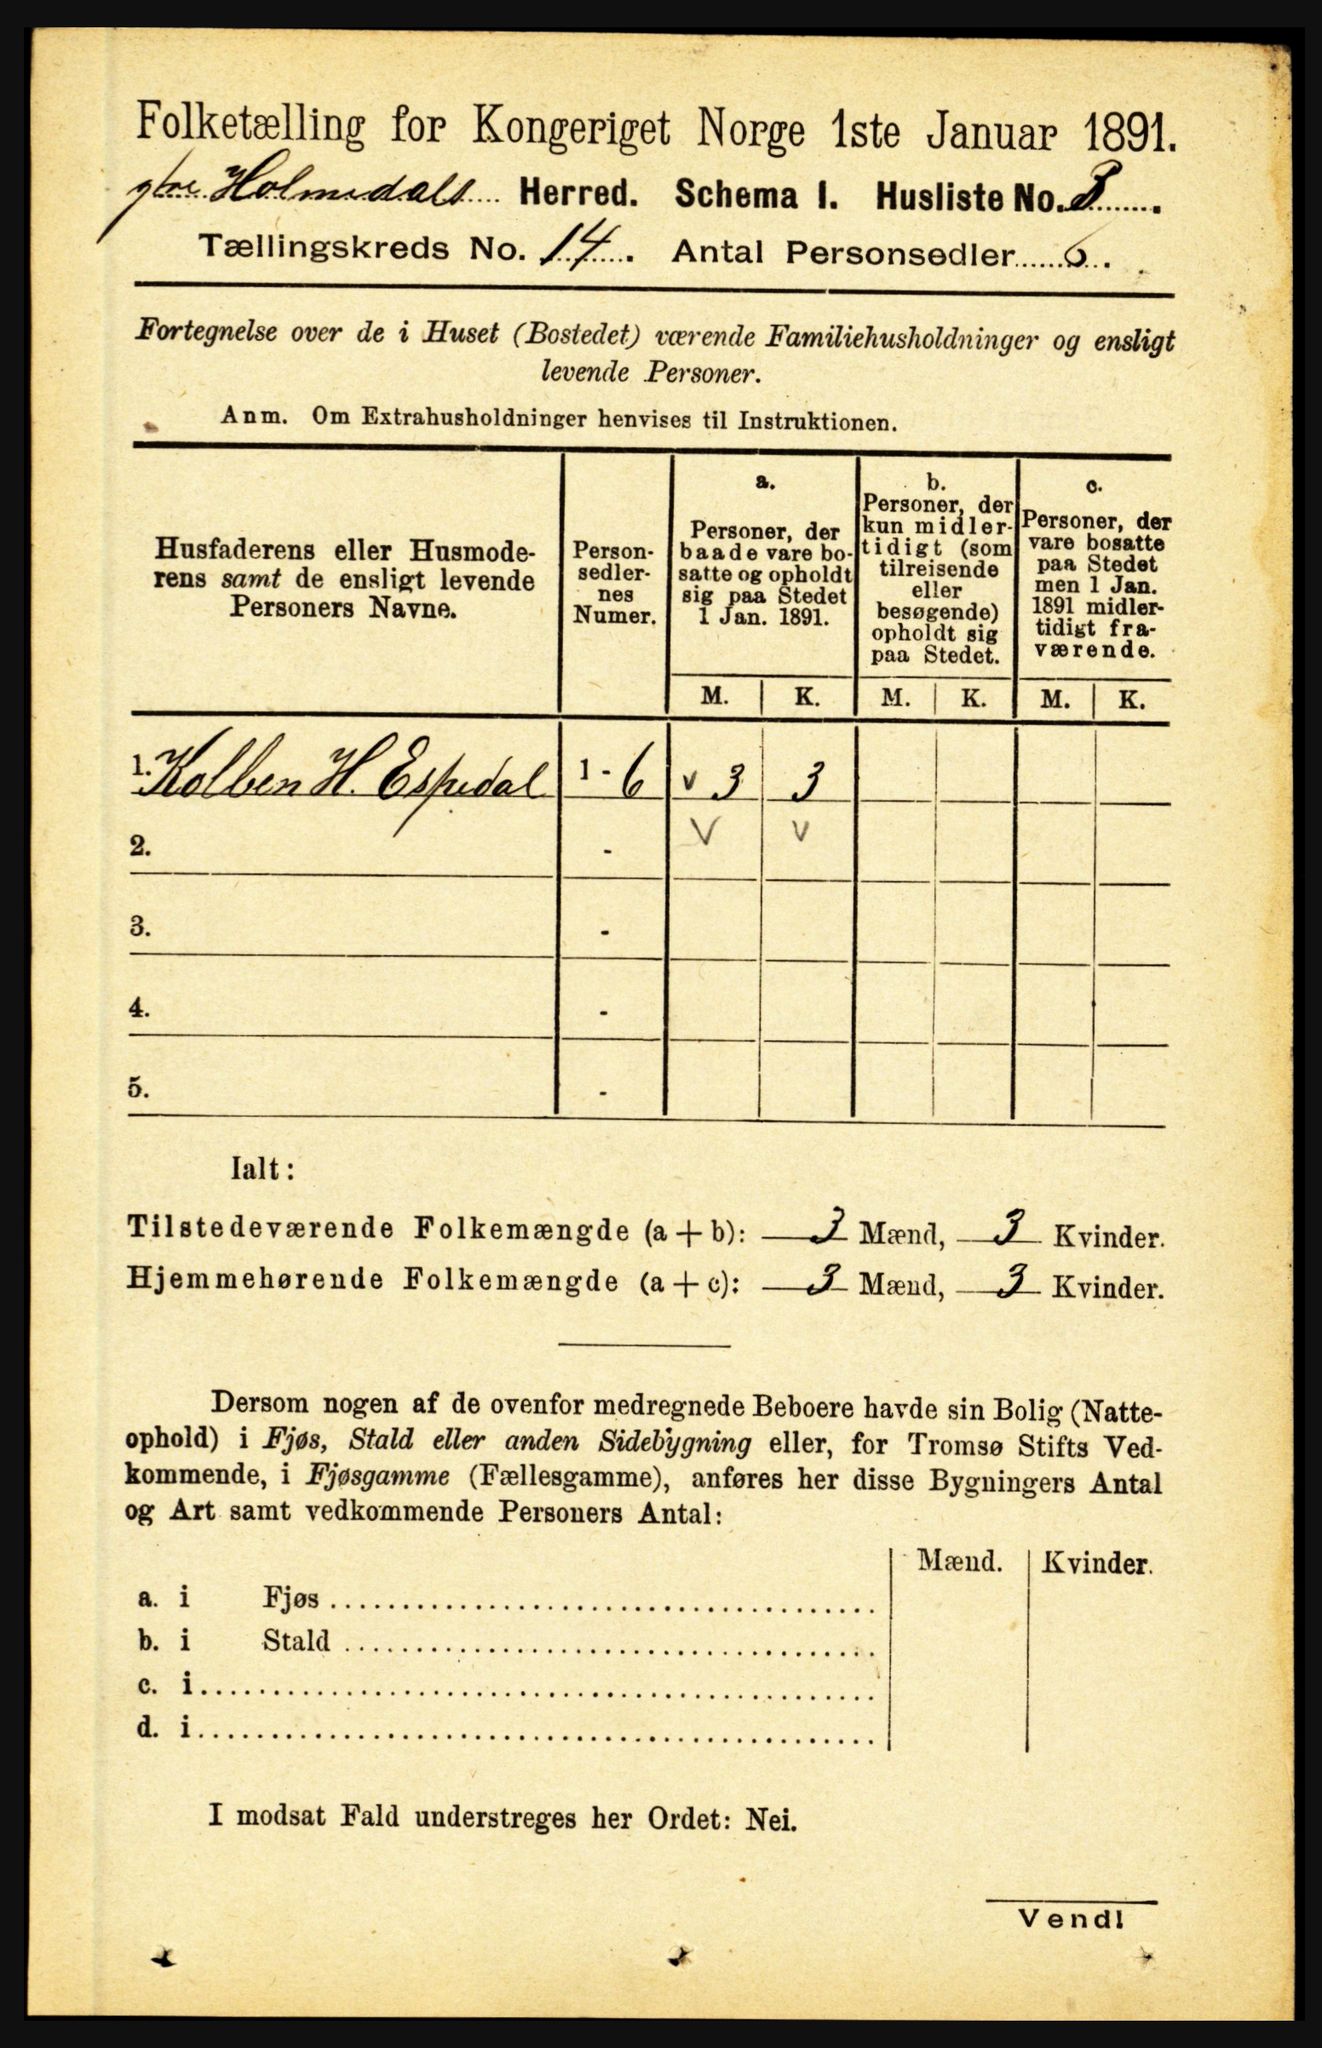 Folketælling for Kongeriget Norge 1ste Januar 1891.
ytre Holmedals Herred. Schema I. Husliste No. 8.
Tællingskreds No. 14. Antal Personsedler 6.
Fortegnelse over de i Huset (Bostedet) værende Familiehusholdninger og ensligt
levende Personer.
Anm. Om Extrahusholdninger henvises til Instruktionen.
Husfaderens eller Husmode-
rens samt de ensligt levende
Personers Navne.
Person-
sedler-
nes
Numer.
a.
Personer, der
baade vare bo-
satte og opholdt
sig paa Stedet
1 Jan. 1891.
b.
Personer, der
kun midler-
tidigt (som
tilreisende
eller
besøgende)
opholdt sig
paa Stedet.
c.
Personer, der
vare bosatte
paa Stedet
men 1 Jan.
1891 midler-
tidigt fra-
værende.
M. K. M. K. M. K.
1. Kolben H. Espedal 1 - 6 v 3 3
2. - v v
3. -
4. -
5. -
Ialt:
Tilstedeværende Folkemængde (a + b): 3 Mænd, 3 Kvinder.
Hjemmehørende Folkemængde (a + c): 3 Mænd, 3 Kvinder.
Dersom nogen af de ovenfor medregnede Beboere havde sin Bolig (Natte-
ophold) i Fjøs, Stald eller anden Sidebygning eller, for Tromsø Stifts Ved-
kommende, i Fjøsgamme (Fællesgamme), anføres her disse Bygningers Antal
og Art samt vedkommende Personers Antal:
Mænd. Kvinder.
a. i Fjøs
b. i Stald
c. i
d. i
I modsat Fald understreges her Ordet: Nei.
Vend!